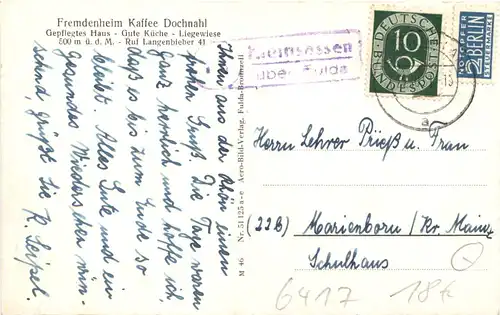 Fremdenheim Kaffee Dochnahl
Gepflegtes Haus - Gute Küche - Liegewiese
500 m ü. d. M. - Ruf Langenbieber 41
Ihnen aus der Rhön einen
frohen Gruß. Die Tage waren
ganz herrlich und hoffe ich,
daß es bis zum Ende so
bleibt. Alles Gute und ein
gesundes Wiedersehen wün-
schend grüßt Sie K. Seipel.
M 46 Nr. 51125 a-e Aero-Bild-Verlag, Fulda-Bronnzell
Kleinsassen
über Fulda
DEUTSCHE
BUNDESPOST
10
NOTOPFER
2 BERLIN
STEUERMARKE
a
Herrn Lehrer Prieß u. Frau
(22b) Marienborn / Kr. Mainz
Schulhaus
6417 18k